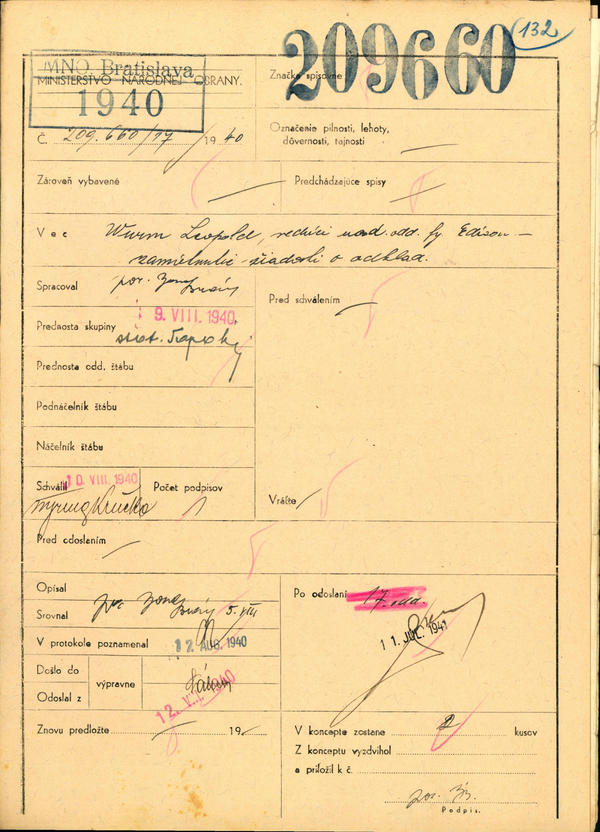 132
209660
MNO Bratislava
MINISTERSTVO NÁRODNEJ OBRANY.
1940
Č. 209.660/17/1940
Značka spisovne
Označenie pilnosti, lehoty,
dôvernosti, tajnosti
Zároveň vybavené
Predchádzajúce spisy
Vec Wurm Leopold, vedúci odd. fy. Edison –
zamietnutie žiadosti o odklad.
Spracoval por.
Pred schválením
9. VIII. 1940
Prednosta skupiny
Prednosta odd. štábu
Podnáčelník štábu
Náčelník štábu
Schválil 10. VIII. 1940
Počet podpisov
1
Vráťte
Pred odoslaním
Opísal
Srovnal 5. VIII
Po odoslaní 17. odd.
11. JUL. 1941
V protokole poznamenal 12 AUG. 1940
Došlo do
výpravne
Odoslal z
12. VIII. 1940
Znovu predložte 19
V koncepte zostane 2 kusov
Z konceptu vyzdvihol
a priložil k č.
por.
Podpis.